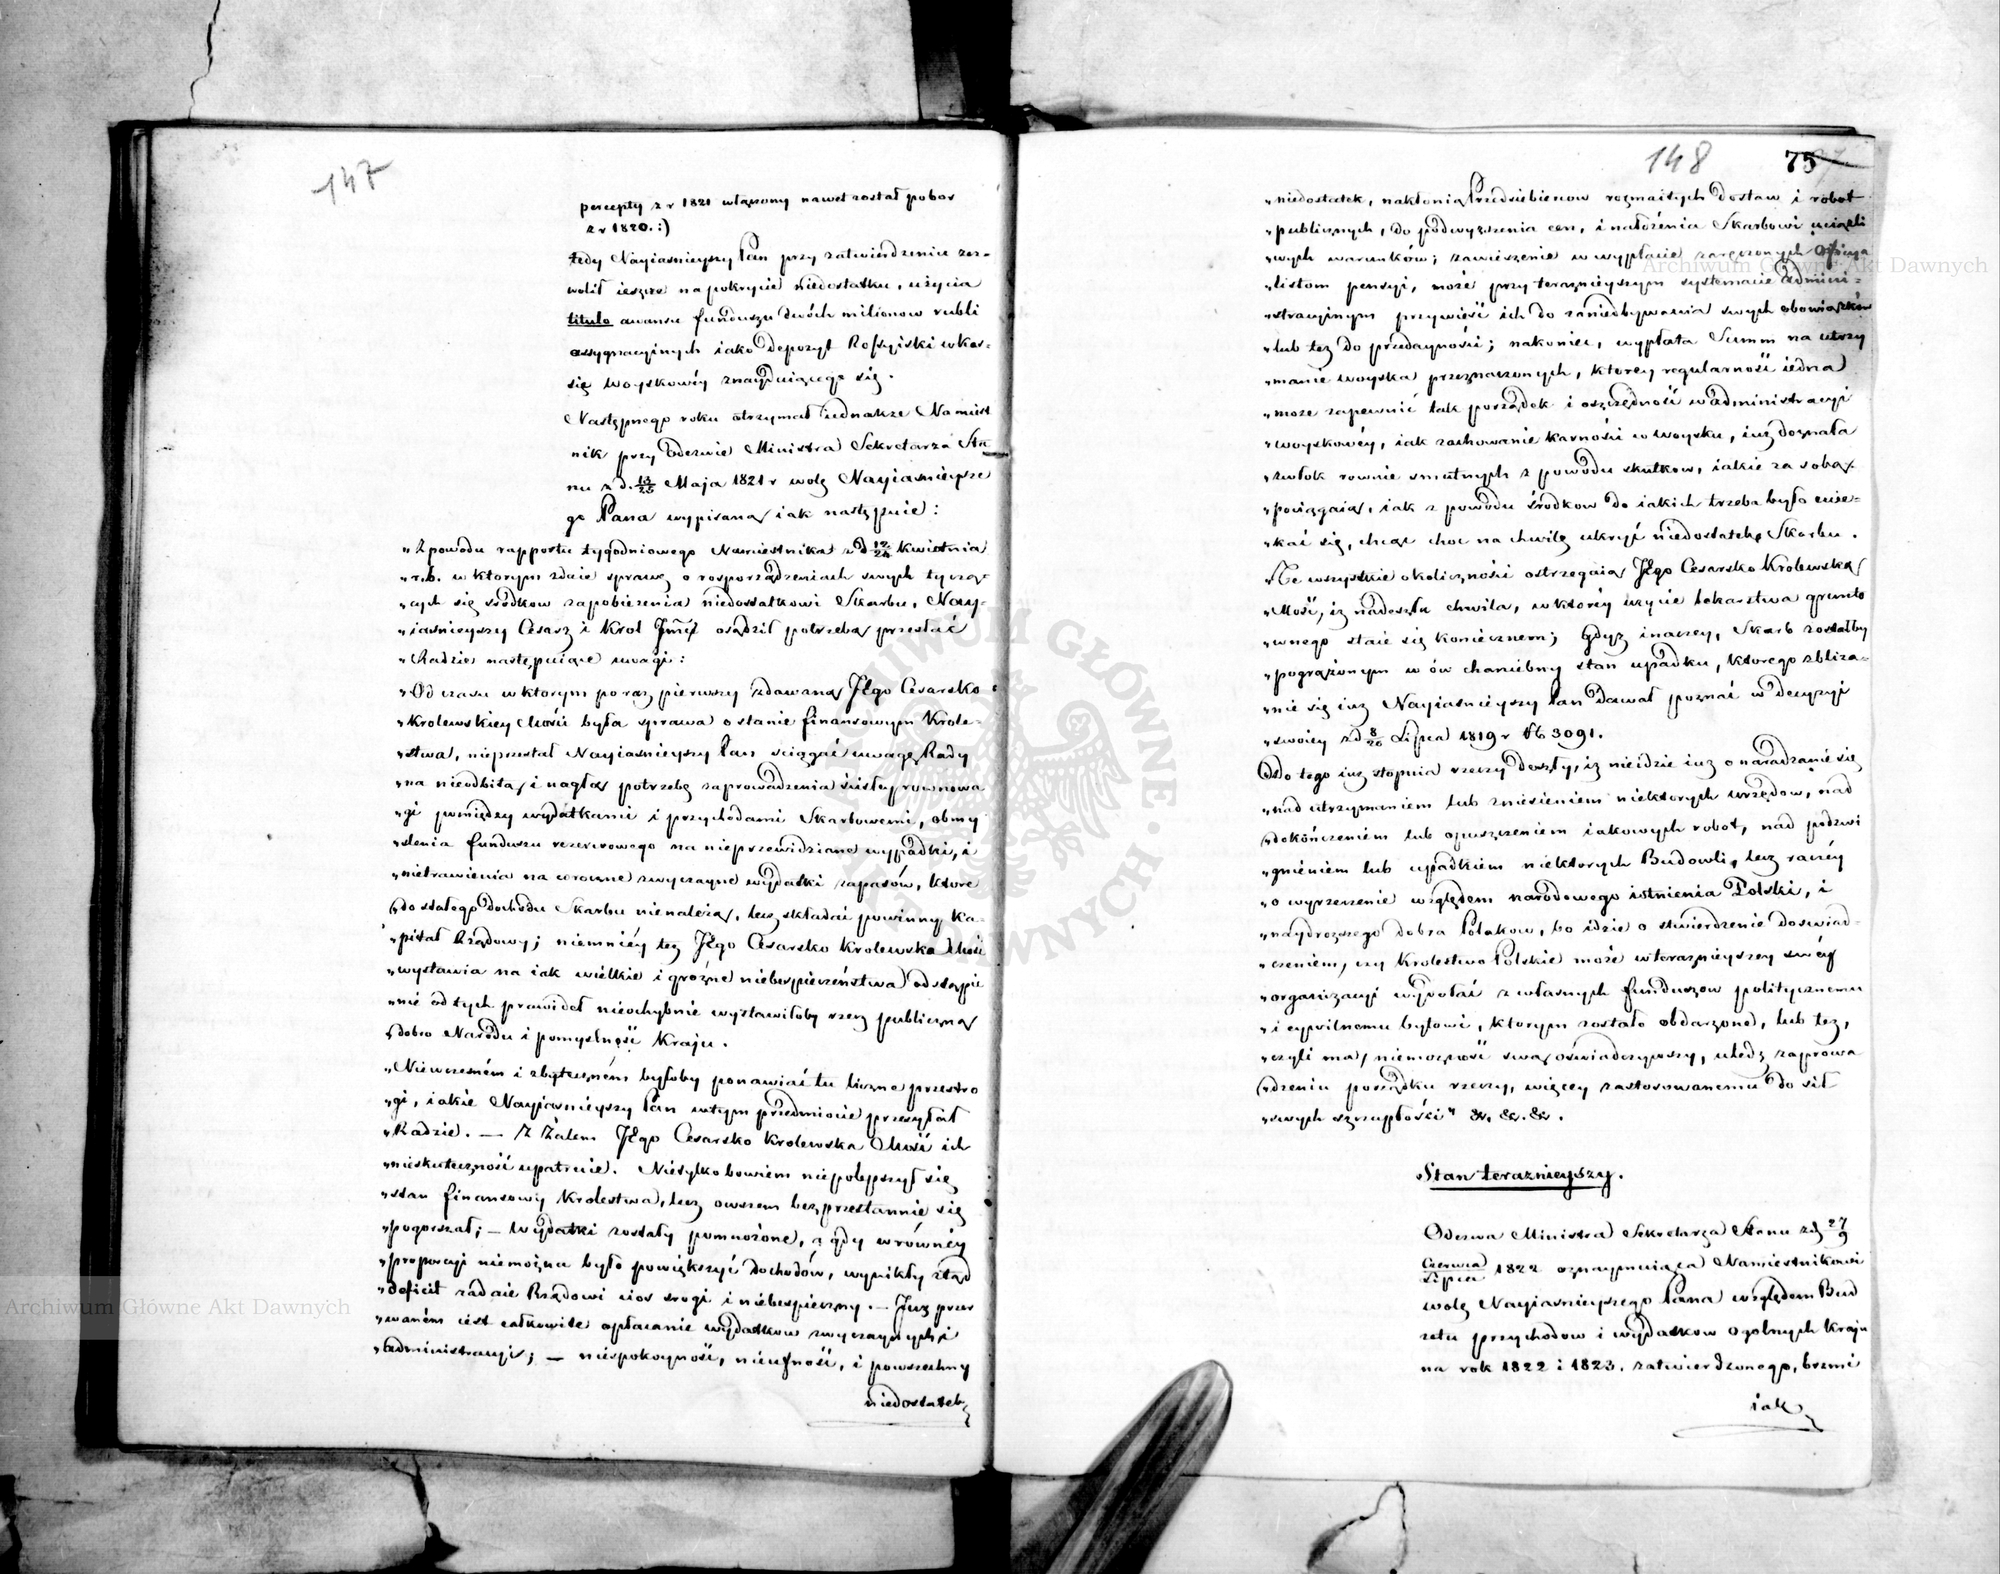 147
percepty z r 1821 włączony nawet został pobor
z r 1820. :)
tedy Nayiaśnieyszy Pan przy zatwierdzeniu zez-
wolił ieszcze na pokrycie niedostatku, użycia
titulo awansu funduszu dwóch milionow rubli
assygnacyinych iako depozyt Rossyiski w kas-
się woyskowéy znayduiącego się.
Następnego roku otrzymał iednakże Namiest
nik przy Odezwie Ministra Sekretarza Sta
nu z d. 13/25 Maja 1821 r wolę Nayiaśnieysze
go Pana wypisaną iak następuie:
„Z powodu rapportu tygodniowego Namiestnika z d 12/24 Kwietnia
„r. b. w ktorym zdaie sprawę o rosporządzeniach swych tyczą-
„cych się srodkow zapobieżenia niedostatkowi Skarbu, Nay-
„iaśnieyszy Cesarz i Krol Jmść osądził potrzebą przesłać
„Radzie następuiące uwagi:
„Od czasu w ktorym po raz pierwszy zdawaną Jego Cesarsko
„Krolewskiey Mości była sprawa o stanie finansowym Krole-
„stwa, nieprzestał Nayiaśnieyszy Pan ściągać uwagę Rady
„na nieodbitą i nagłą potrzebę zaprowadzenia ścisłey rownowa
„gi pomiędzy wydatkami i przychodami Skarbowemi, obmy
„slenia funduszu rezerwowego na nieprzewidziane wypadki, i
„nietrawienia na coroczne zwyczayne wydatki zapasów, ktore
„do stałego dochodu Skarbu nienależą, lecz składać powinny Ka-
„pitał Rządowy; niemniéy też Jego Cesarsko Krolewska Mość
„wystawia na iak wielkie i groźne niebezpieczeństwa odstąpie
„nie od tych prawideł nieochybnie wystawiłoby rzecz publiczną
„dobro Narodu i pomyslność Kraju.
„Niewczesném i zbyteczném byłoby ponawiać tu liczne przestro
„gi, iakie Nayiaśnieyszy Pan w tym przedmiocie przesyłał
„Radzie. — Z żalem Jego Cesarsko Krolewska Mość ich
„nieskuteczność upatruie. Nietylko bowiem niepolepszył się
„stan finansowy Krolestwa, lecz owszem bezprzestannie się
„pogorszał; — wydatki zostały pomnożone, a gdy w równéy
„proporcyi niemożna było powiększyć dochodów, wynikły ztąd
„deficit zadaie Rządowi cios srogi i niebezpieczny. — Już przer
„waném iest całkowite opłacanie wydatkow zwyczaynych
„administracyi; — niespokoyność, nieufność, i powszechny
niedostatek
148
75
„niedostatek, nakłonią Przedsiebiercow rozmaitych dostaw i robot
„publicznych, do podwyższenia cen, i nałożenia Skarbowi uciążli
„wych warunków; zawieszenie w wypłacie zaręczonych Officya
„listom pensyi, może przy teraznieyszym systemacie Admini-
„stracyinym przywieść ich do zaniedbywania swych obowiązków
„lub też do przedayności; nakoniec, wypłata Summ na utrzy
„manie woyska przeznaczonych, ktorey regularność iedna
„może zapewnić tak porządek i oszczędność w administracyi
„woyskowéy, iak zachowanie karności w woysku, iuż doznała
„zwłok rownie smutnych z powodu skutkow, iakie za sobą
„pociągaią, iak z powodu środkow do iakich trzeba było ucie-
„kać się, chcąc choc na chwilę ukryć niedostatek Skarbu.
„Te wszystkie okoliczności ostrzegaią Jego Cesarsko Krolewską
„Mość, iż nadeszła chwila, w ktoréy użycie lekarstwa grunto
„wnego staie się koniecznem; Gdyż inaczey, Skarb zostałby
„pogrążonym w ów chaniebny stan upadku, ktorego zbliża-
„nie się iuż Nayiaśnieyszy Pan dawał poznać w decyzyi
„swoiey z d 8/20 Lipca 1819 r № 3091.
„Do tego iuż stopnia rzeczy doszły, iż nieidzie iuż o naradzanie się
„nad utrzymaniem lub zniesieniem niektorych urzędow, nad
„dokończeniem lub opuszczeniem iakowych robot, nad podzwi
„gnieniem lub upadkiem niektorych Budowli, lecz raczéy
„o wyrzeczenie względem narodowego istnienia Polski, i
„naydrozszego dobra Polakow, bo idzie o stwierdzenie doswiad-
„czeniem, czy Krolestwo Polskie może w teraznieyszey swéy
„organizacyi wydołać z własnych funduszow politycznemu
„i cywilnemu bytowi, ktorym zostało obdarzone, lub też,
„czyli ma, niemożność swą oświadczywszy, uledz zaprowa
„dzeniu porządku rzeczy, więcey zastosowanemu do sił
„swych szczupłości" &c. &c. &c.
Stan teraznieyszy.
Odezwa Ministra Sekretarza Stanu z d 27/9
Czerwca/Lipca 1822 oznaymuiąca Namiestnikowi
wolę Nayiaśnieyszego Pana względem Bud
żetu przychodow i wydatkow ogolnych Kraju
na rok 1822 i 1823. zatwierdzonego, brzmi
iak
Archiwum Główne Akt Dawnych
Archiwum Główne Akt Dawnych
ARCHIWUM GŁÓWNE AKT DAWNYCH